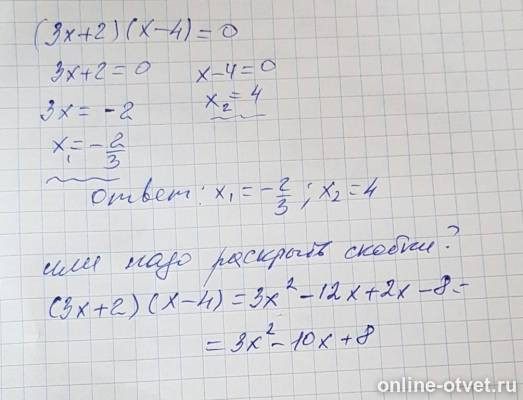 (3x+2)(x-4)=0
3x+2=0 x-4=0
3x=-2 x₂=4
x₁=-2/3
ответ: x₁=-2/3; x₂=4
или надо раскрыть скобки?
(3x+2)(x-4)=3x²-12x+2x-8=
=3x²-10x+8
online-otvet.ru